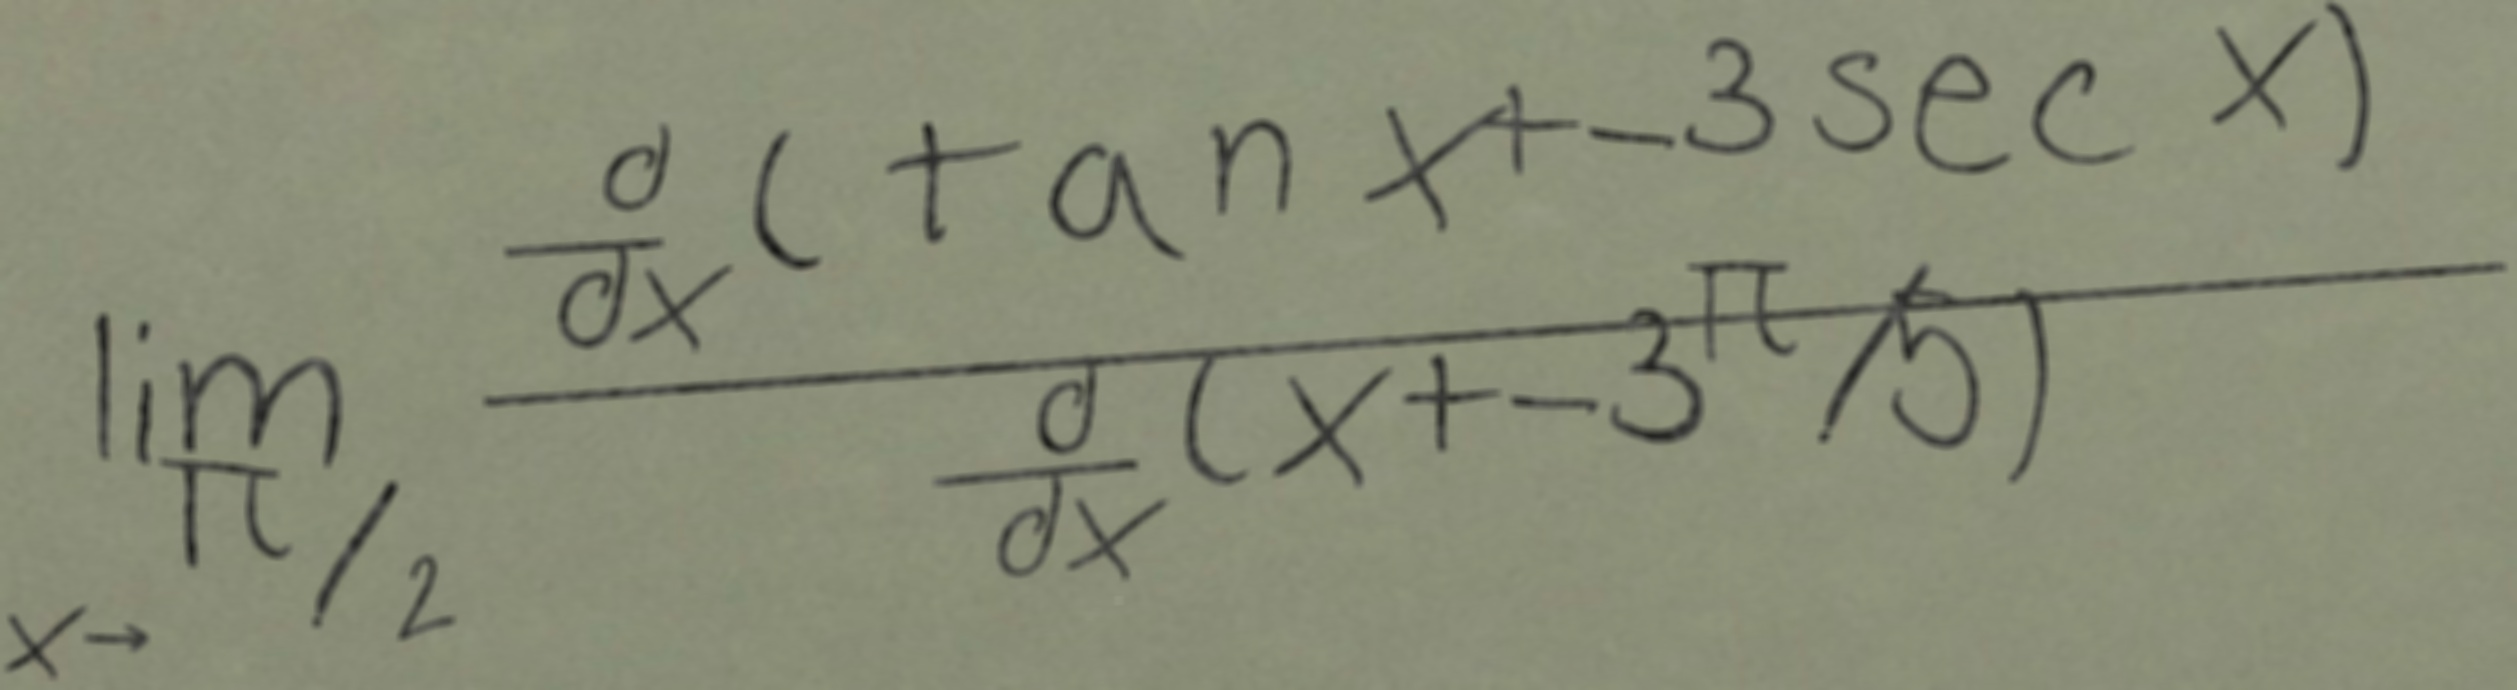 lim x→π/2 \frac{\frac{d}{dx}(tan x+-3 sec x)}{\frac{d}{dx}(x+-3π/5)}